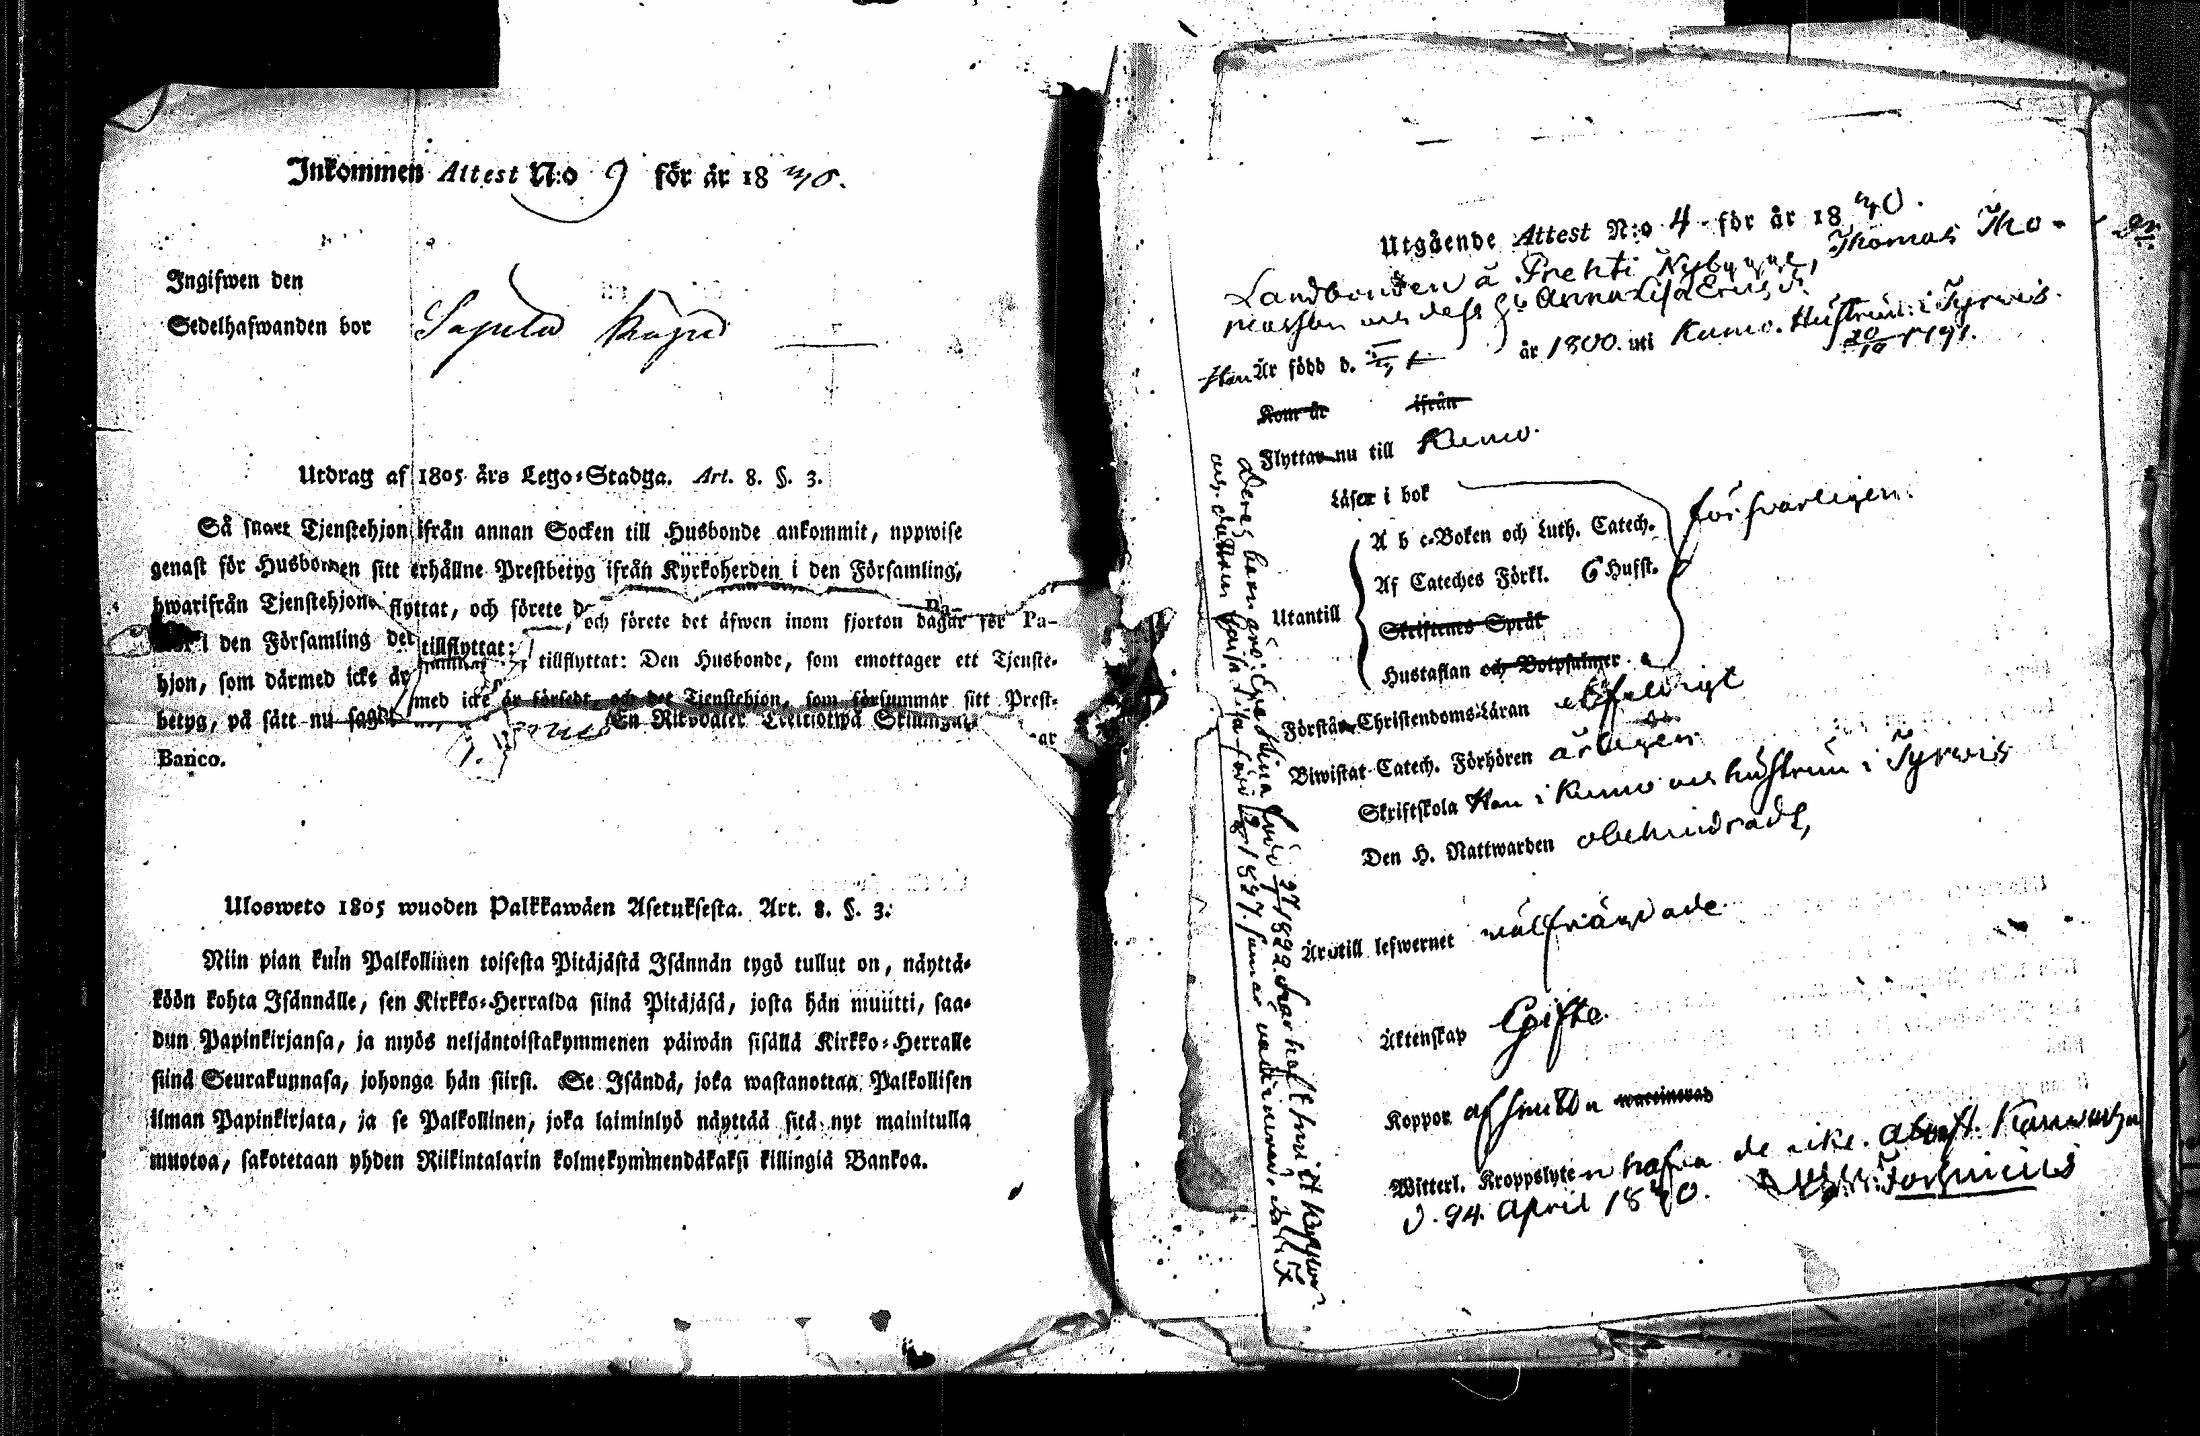 Inkommen Attest N:o 9 för år 1840.
Ingifwen den
Sedelhafwanden bor
Utdrag af 1805 års Lego-Stadga. Art. 8. §. 3.
Så snart Tjenstehjon ifrån annan Socken till Husbonde ankommit, uppwise
genast för Husbonden sitt erhållne Prestbetyg ifrån Kyrkoherden i den Församling,
hwarifrån Tjenstehjonet flyttat, och förete
och förete det äfwen inom fjorton dagar för Pa-
i den Församling det tillflyttat:
tillflyttat: Den Husbonde, som emottager ett Tjenste-
hjon, som därmed icke är
med icke är försedt, och det Tjenstehjon, som försummar sitt Prest-
betyg, på sätt nu sagdt
En Riksdaler Trettiotwå Skillingar
Banco.
Ulosweto 1805 wuoden Palkkawäen Asetuksesta. Art. 8. §. 3.
Niin pian kuin Palkollinen toisesta Pitäjästä Isännän tygö tullut on, näyttä-
köön kohta Isännälle, sen Kirkko-Herralda siinä Pitäjäsä, josta hän muutti, saa-
dun Papinkirjansa, ja myös neljäntoistakymmenen päiwän sisällä Kirkko-Herralle
siinä Seurakunnasa, johonga hän siirsi. Se Isändä, joka wastanottaa Palkollisen
ilman Papinkirjata, ja se Palkollinen, joka laiminlyö näyttää sitä nyt mainitulla
muotoa, sakotetaan yhden Riikintalarin kolmekymmendäkaksi killingiä Bankoa.
Utgående Attest N:o 4 för år 1840.
Landbonden å Prehti Nybygge, Thomas Tho-
masson och dess H:u Anna Lisa Ericsd:r
Han Är född d. år 1800. uti Kumo. Hustrun i Tyrwis 20/10 1791.
Kom år ifrån
Flyttar nu till Kumo.
Läser i bok
A b c-Boken och Luth. Catech. försvarligen.
Af Cateches Förkl. 6 Hufst.
Utantill
Skriftenes Språk
Hustaflan och Botpsalmer
Förstår Christendoms-Läran
Biwistat Catech. Förhören årligen
Skriftskola Han i Kumo och hustrun i Tyrwis
Den H. Nattwarden obehindrade,
Äro till lefwernet välfrägdade
Äktenskap Gifte
Koppor waccinerad
Witterl. Kroppslyten hafva de icke.
d. 24. April 1840.
Deras barn äro: Eva Stina född 1822. har haft koppor
och dottren Lovisa Lisa född 1827. vaccinerad.